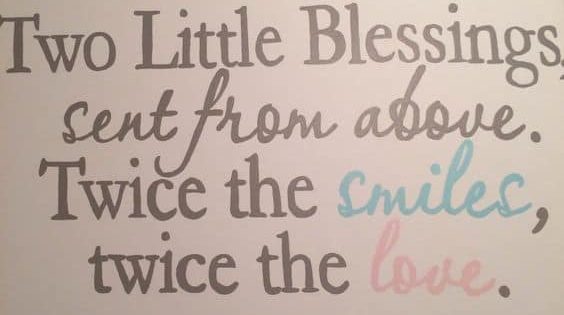 Two Little Blessings,
sent from above.
Twice the smiles,
twice the love.